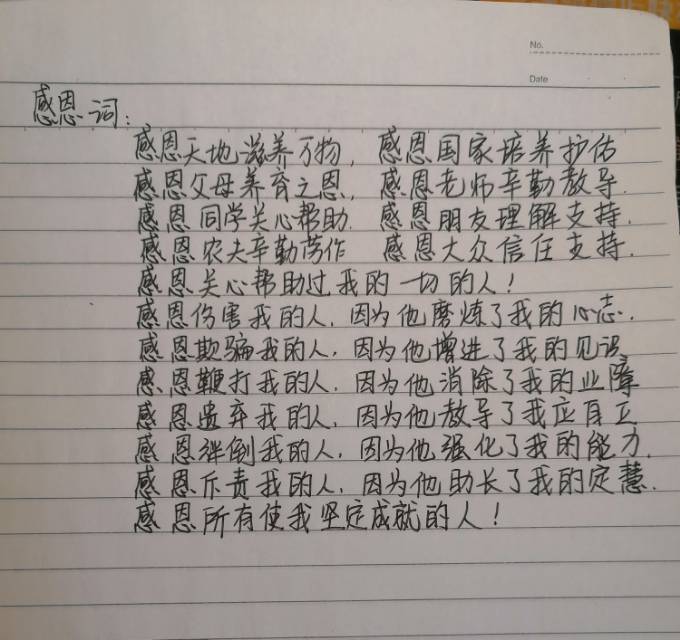 No.
Date
感恩词：
感恩天地滋养万物， 感恩国家培养护佑
感恩父母养育之恩， 感恩老师辛勤教导.
感恩同学关心帮助. 感恩朋友理解支持.
感恩农夫辛勤劳作 感恩大众信任支持.
感恩关心帮助过我的一切的人！
感恩伤害我的人. 因为他磨炼了我的心志.
感恩欺骗我的人. 因为他增进了我的见识
感恩鞭打我的人. 因为他消除了我的业障
感恩遗弃我的人. 因为他教导了我应自立
感恩绊倒我的人. 因为他强化了我的能力.
感恩斥责我的人. 因为他助长了我的定慧.
感恩所有使我坚定成就的人！